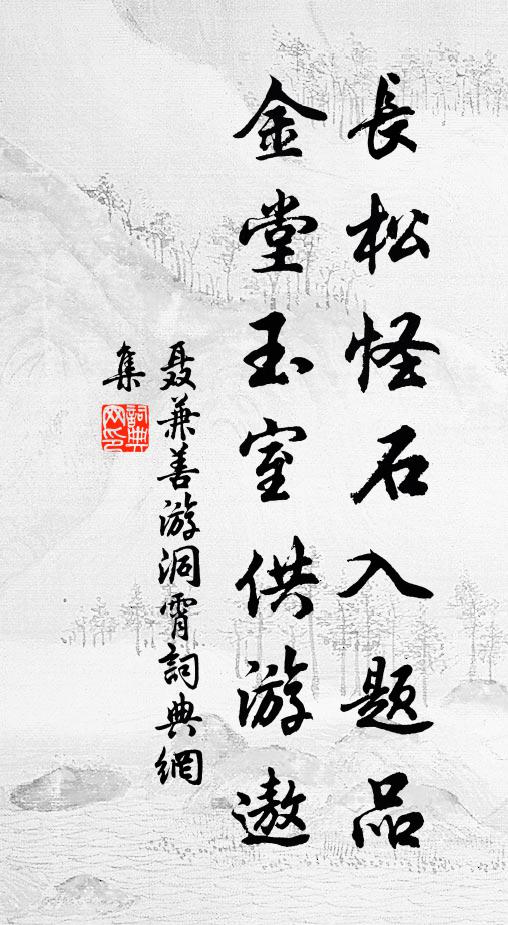 長松怪石入题品
金堂玉室供游遨
聂兼善游洞霄詞典網
集
詞典
网印